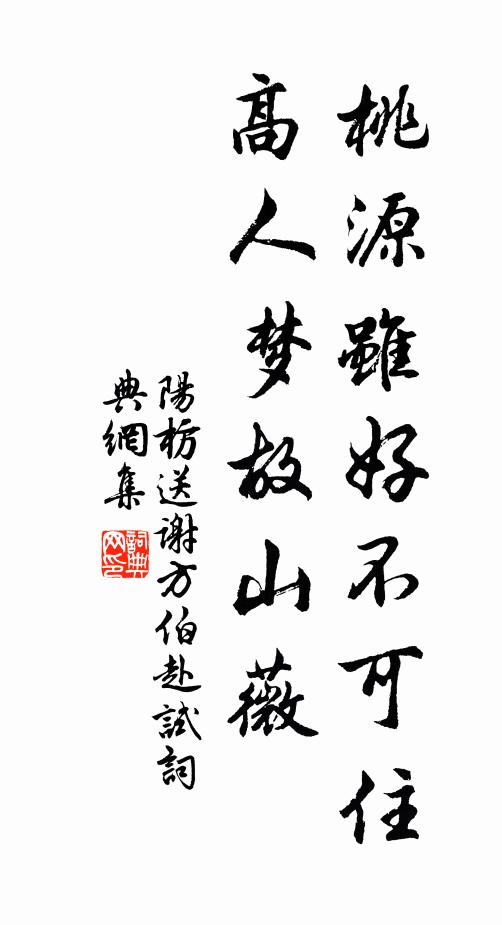 桃源雖好不可住
高人梦故山薇
陽枋送谢方伯赴試詞
典網集
詞典
网印